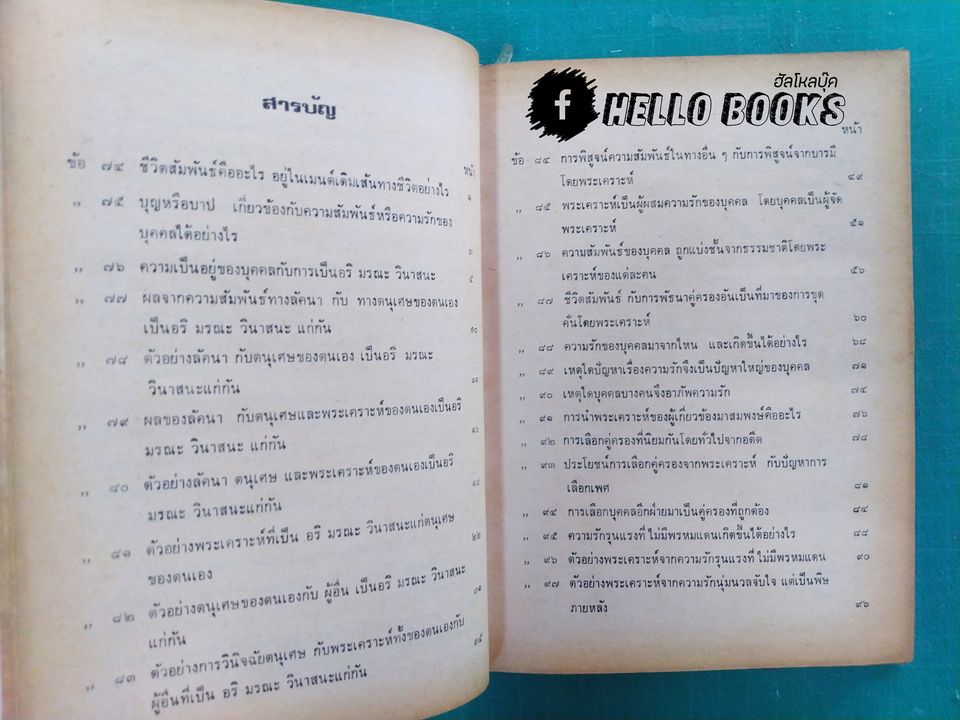 สารบัญ
หน้า
ข้อ ๗๔ ชีวิตสัมพันธ์คืออะไร อยู่ในเมนต์เดิมเส้นทางชีวิตอย่างไร ๑
,, ๗๕ บุญหรือบาป เกี่ยวข้องกับความสัมพันธ์หรือความรักของ
บุคคลได้อย่างไร ๓
,, ๗๖ ความเป็นอยู่ของบุคคลกับการเป็นอริ มรณะ วินาสนะ ๕
,, ๗๗ ผลจากความสัมพันธ์ทางลัคนา กับ ทางตนุเศษของตนเอง
เป็นอริ มรณะ วินาสนะ แก่กัน ๑๐
,, ๗๘ ตัวอย่างลัคนา กับตนุเศษของตนเอง เป็นอริ มรณะ
วินาสนะแก่กัน
,, ๗๙ ผลของลัคนา กับตนุเศษและพระเคราะห์ของตนเองเป็นอริ
มรณะ วินาสนะ แก่กัน ๑๖
,, ๘๐ ตัวอย่างลัคนา ตนุเศษ และพระเคราะห์ของตนเองเป็นอริ
มรณะ วินาสนะแก่กัน ๑๘
,, ๘๑ ตัวอย่างพระเคราะห์ที่เป็น อริ มรณะ วินาสนะแก่ตนุเศษ
ของตนเอง ๒๒
,, ๘๒ ตัวอย่างตนุเศษของตนเองกับ ผู้อื่น เป็นอริ มรณะ วินาสนะ
แก่กัน ๓๑
,, ๘๓ ตัวอย่างการวินิจฉัยตนุเศษ กับพระเคราะห์ทั้งของตนเองกับ
ผู้อื่นที่เป็น อริ มรณะ วินาสนะแก่กัน
ฮัลโหลบุ๊ค
f HELLO BOOKS
หน้า
ข้อ ๘๔ การพิสูจน์ความสัมพันธ์ในทางอื่น ๆ กับการพิสูจน์จากบารมี
โดยพระเคราะห์ ๔๙
,, ๘๕ พระเคราะห์เป็นผู้ผสมความรักของบุคคล โดยบุคคลเป็นผู้จัด
พระเคราะห์ ๕๑
,, ๘๖ ความสัมพันธ์ของบุคคล ถูกแบ่งชั้นจากธรรมชาติโดยพระ
เคราะห์ของแต่ละคน ๕๖
,, ๘๗ ชีวิตสัมพันธ์ กับการพัธนาคู่ครองอันเป็นที่มาของการขุด
คั่นโดยพระเคราะห์ ๖๐
,, ๘๘ ความรักของบุคคลมาจากไหน และเกิดขึ้นได้อย่างไร ๖๘
,, ๘๙ เหตุใดปัญหาเรื่องความรักจึงเป็นปัญหาใหญ่ของบุคคล ๗๑
,, ๙๐ เหตุใดบุคคลบางคนจึงอาภัพความรัก ๗๔
,, ๙๑ การนำพระเคราะห์ของผู้เกี่ยวข้องมาสมพงษ์คืออะไร ๗๖
,, ๙๒ การเลือกคู่ครองที่นิยมกันโดยทั่วไปจากอดีต ๗๘
,, ๙๓ ประโยชน์การเลือกคู่ครองจากพระเคราะห์ กับปัญหาการ
เลือกเพศ ๘๑
,, ๙๔ การเลือกบุคคลอีกฝ่ายมาเป็นคู่ครองที่ถูกต้อง ๘๔
,, ๙๕ ความรักรุนแรงที่ ไม่มีพรหมแดนเกิดขึ้นได้อย่างไร ๘๘
,, ๙๖ ตัวอย่างพระเคราะห์จากความรักรุนแรงที่ ไม่มีพรหมแดน ๙๐
,, ๙๗ ตัวอย่างพระเคราะห์จากความรักนุ่มนวลจับใจ แต่เป็นพิษ
ภายหลัง ๙๖